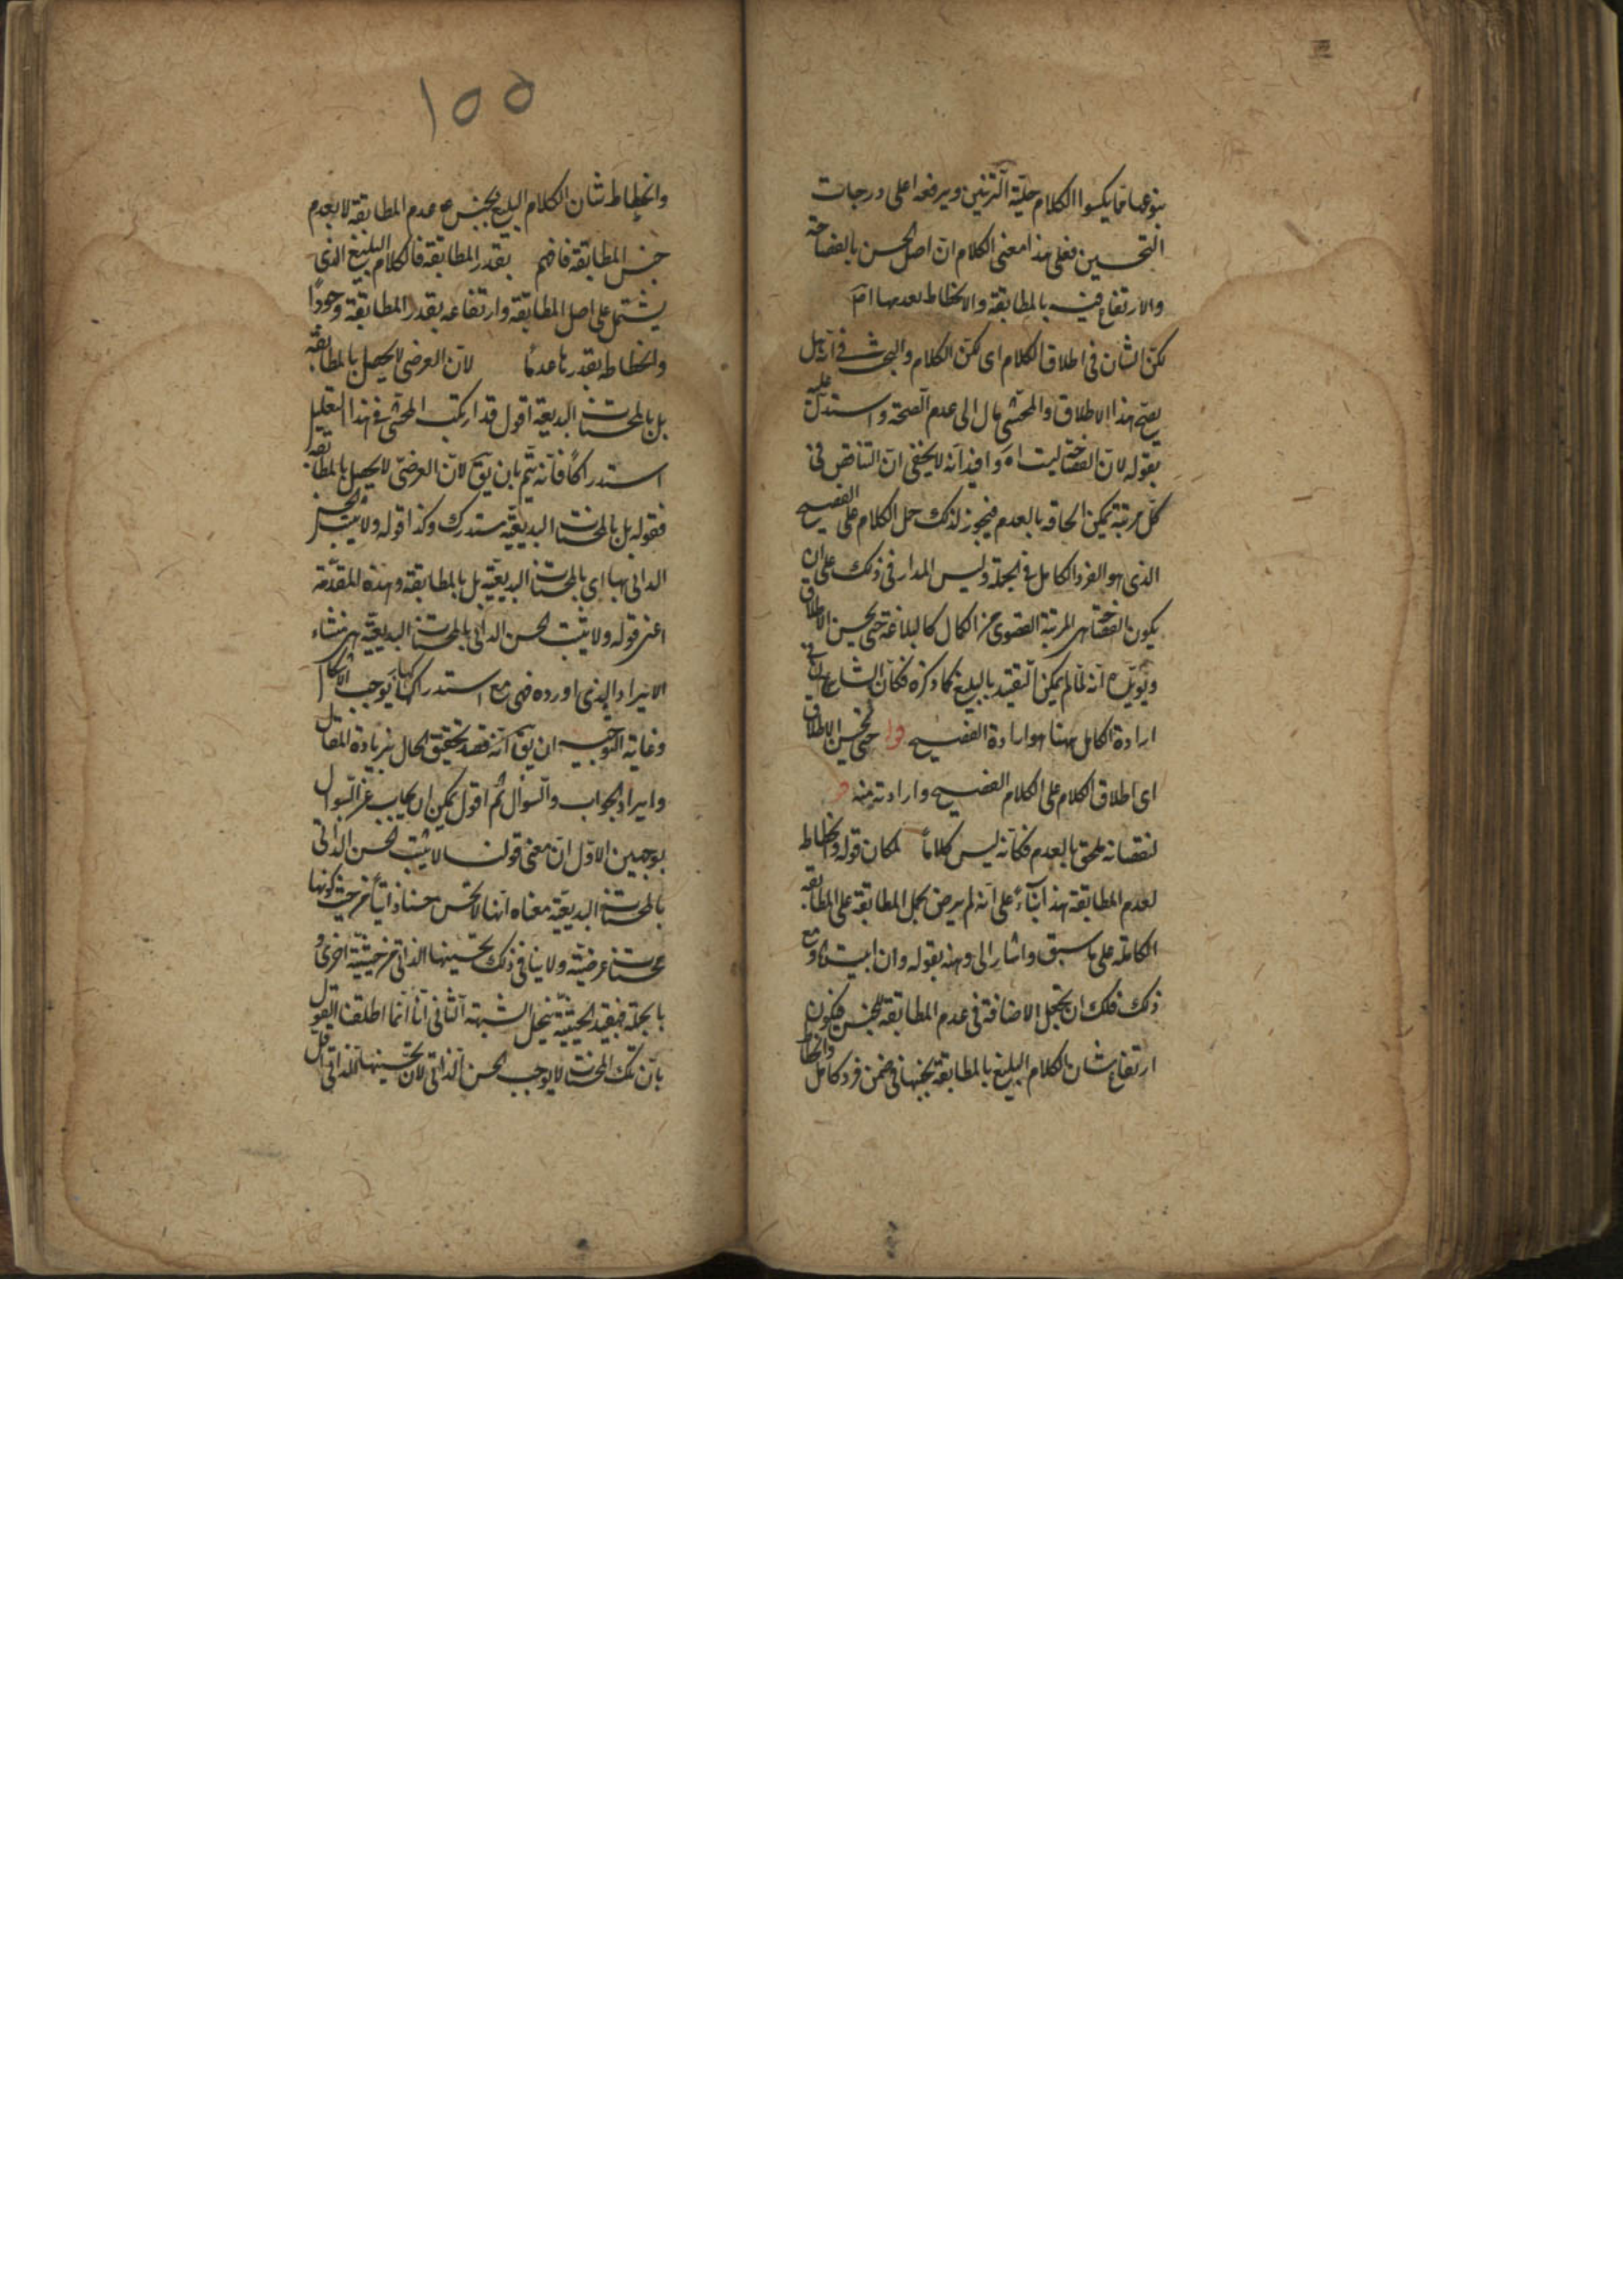 بنوعها مما يكسوا الكلام حلية التزيين ويرفعه اعلى درجات
التحسين فعلى هذا معنى الكلام ان اصل الحسن بالفصاحة
والارتفاع فيه بالمطابقة والانحطاط بعدمها
لكن الشان فى اطلاق الكلام اى لكن الكلام والبحث فى انه هل
يصح هذا الاطلاق والمحشى مال الى عدم الصحة واستدل عليه
بقوله لان الفصاحة ليست اه وافيد انه لا يخفى ان التناقص فى
كل مرتبة يمكن الحاقه بالعدم فيجوز لذلك حمل الكلام على الفصيح
الذى هو الفرد الكامل فى الجملة وليس المدار فى ذلك على ان
يكون الفصاحة هى المرتبة القصوى من الكمال كالبلاغة حتى يحسن الاطلاق
انه لما لم يمكن التقييد بالبليغ كما ذكره فكان الشايع فى
ارادة الكامل ههنا هو ارادة الفصيح قوله حتى يحسن الاطلاق
اى اطلاق الكلام على الكلام الفصيح وارادته منه
لنقصانه ملحق بالعدم فكانه ليس كلاماً لمكان قوله وانحطاطه
لعدم المطابقة هذا بناءً على انه لم يرض بحمل المطابقة على المطابقة
الكاملة على ما سبق واشار الى وهنه بقوله وان ابيت الا ومع
ذلك فلك ان تجعل الاضافة فى عدم المطابقة للجنس فيكون
ارتفاع شان الكلام البليغ بالمطابقة بجنسها فى ضمن فرد كامل وانحطاط
١٥٥
وانحطاط شان الكلام البليغ بجنس عدم المطابقة لا بعدم
جنس المطابقة فافهم بقدر المطابقة فالكلام البليغ الذى
يشتمل على اصل المطابقة وارتفاعه بقدر المطابقة وجودًا
وانحطاطه بقدرها عدمًا لان العرضى لا يحصل بالمطابقة
بل بالمحسنات البديعية اقول قد ارتكب المحشى فى هذا التعليل
استدراكًا فانه يتم بان يق لان العرضىّ لا يحصل بالمطابقة
فقوله بل بالمحسنات البديعيّة مستدرك وكذا قوله ولا يثبت الحسن
الذاتى بها اى بالمحسنات البديعيّة بل بالمطابقة وهذه المقدّمة
اعنى قوله ولا يثبت الحسن الذاتى بالمحسنات البديعيّة هى منشاء
الايراد الذى اورده فهى مع استدراكها يوجب
وغاية التوجيه ان يق انه قصد تحقيق الحال بزيادة المقال
وايراد الجواب والسؤال ثم اقول يمكن ان يجاب عن السؤال
بوجهين الاوّل ان معنى قولنا لا يثبت الحسن الذاتى
بالمحسنات البديعيّة معناه انها لا تحسن حسنا ذاتيًا من حيث كونها
محسنات عرضيّة ولا ينافى ذلك تحسينها الذاتى من حيثيّة اخرى و
بالجملة فبقيد الحيثيّة ينحل الشبهة الثانى انا انما اطلقنا القول
بان تلك المحسنات لا يوجب الحسن الذاتى لان تحسينها الذاتى اقل